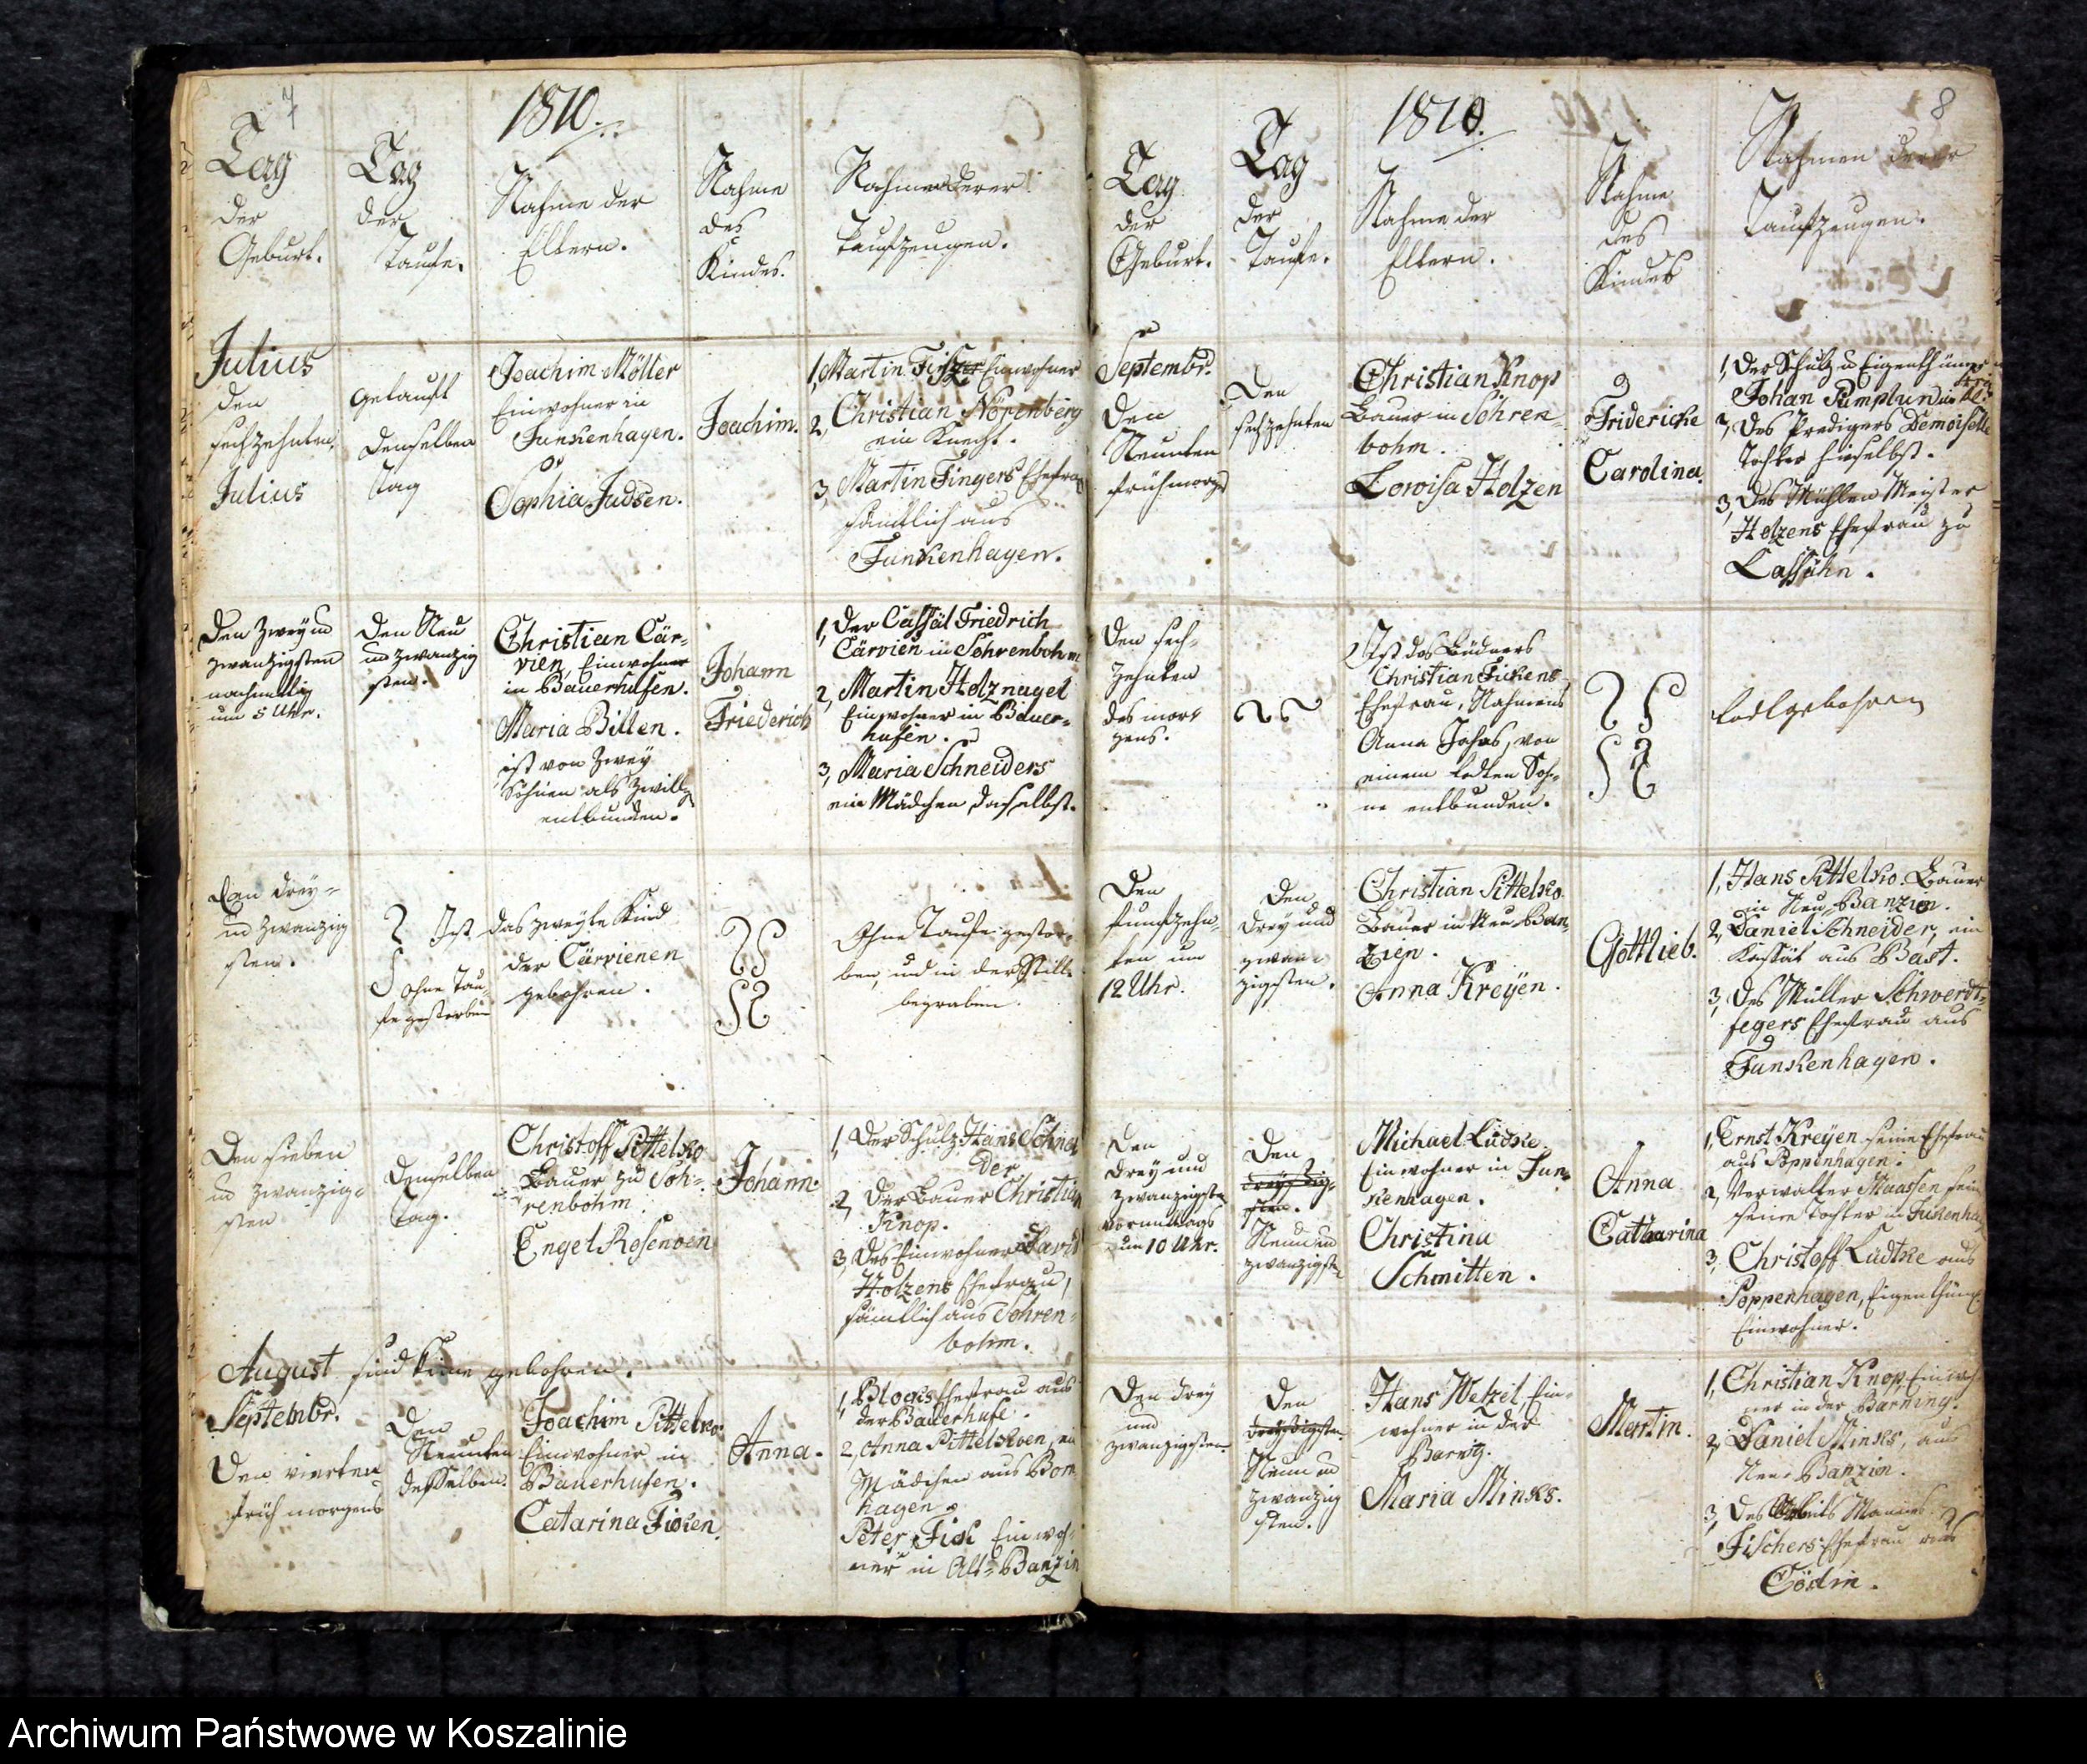 7
1810.
Tag
der
Geburt.
Tag
der
Taufe.
Nahme der
Eltern.
Nahme
des
Kindes.
Nahmen derer
Taufzeugen.
Julius
den
sechzehnten
Julius
getauft
denselben
Tag
Joachim Möller
Einwohner in
Funkenhagen.
Sophia Judsen.
Joachim.
1, Martin Einwohner
2, Christian Nörenberg
ein Knecht.
3, Martin Fingers Ehefrau
sämtlich aus
Funkenhagen.
Den Zwey und
zwanzigsten
nachmittag
um 5 Uhr.
Den Neu
und zwanzig
sten.
Christian Cär-
vien, Einwohner
in Bauerhufen.
Maria Billen.
ist von Zwey
Söhnen als Zwillg
entbunden.
Johann
Friederich
1, Der Cassät Friedrich
Cärvien in Sohrenbohm
2, Martin Holznagel
Einwohner in Bauer-
hufen.
3, Maria Schneiders
ein Mädchen daselbst.
Den drey-
und zwanzig
sten.
ohne Tau-
fe gestorben
Ist das zweyte Kind
der Cärvienen
gebohren.
Ohne Taufe gestor-
ben, und in der Stille
begraben.
Den sieben
und zwanzig-
sten
denselben
Tag.
Christoff Pittelko
Bauer zu Soh-
renbohm.
Engel Rosenoen
Johann.
1, Der Schulz Hans Schnei
der
2, Der Bauer Christian
Knop.
3, Des Einwohner David
Holzens Ehefrau,
sämtlich aus Sohren-
bohm.
August sind keine gebohren.
Septembr.
Den vierten
früh morgens
Den
Neunten
desselben.
Joachim Pittelko.
Einwohner in
Bauerhufen.
Catarina Ficken
Anna.
1, Blocis Ehefrau aus
der Bauerhufe.
2, Anna Pittelkoen, en
Mädchen aus Born
hagen
Peter Fick Einwoh-
ner in Alt-Banzin
8
1810.
Tag
der
Geburt.
Tag
der
Taufe.
Nahme der
Eltern.
Nahme
des
Kindes
Nahmen derer
Taufzeugen.
Septembr.
Den
Neunten
frühmorgs
Den
sechzehnten
Christian Knop
Bauer in Sohren-
bohm.
Lowisa Holzen
Fridericke
Carolina.
1, Der Schulz u Eigenthümer
Johan Pumplun
2, Des Predigers Demoiselle
Tochter hieselbst.
3, Des Mühlen Meister
Holzens Ehefrau zu
Lassühn.
Den sech-
zehnten
des mor-
gens.
Ist des Büdners
Christian Fickens
Ehefrau, Nahmens
Anna Jahns, von
einem todten Soh-
ne entbunden.
todtgebohren
Den
funfzehn-
ten um
12 Uhr.
Den
drey und
zwan-
zigsten.
Christian Pittelko
Bauer in Neu Ban-
zien.
Anna Kreyen.
Gottlieb.
1, Hans Pittelko. Bauer
in Neu-Banzin.
2, Daniel Schneider, ein
Kossät aus Bast.
3, Des Müller Schwerdt-
fegers Ehefrau aus
Funkenhagen.
Den
drey und
zwanzigsten
vormittags
um 10 Uhr.
Den
dreyßig-
sten.
Neun und
zwanzigsten
Michael Lüdke.
Einwohner in Fun-
kenhagen.
Christina
Schmitten.
Anna
Catharina
1, Ernst Kreyen seine Ehefrau
aus Poppenhagen.
2, Verwalter Maassen sein
seine Tochter in
3, Christoff Lüdtke aus
Poppenhagen, Eigenthüm.
Einwohner.
Den drey
und
zwanzigsten.
Den
dreyßigsten
Neun und
zwanzig
sten.
Hans Wetzel, Ein-
wohner in der
Barnig.
Maria Minks.
Martin.
1, Christian Knop, Einwoh
ner in der Barning.
2, Daniel Minks, aus
Neu-Banzin.
3, Des Arbeits Mannes
Fischers Ehefrau aus
Cöslin.
Archiwum Państwowe w Koszalinie